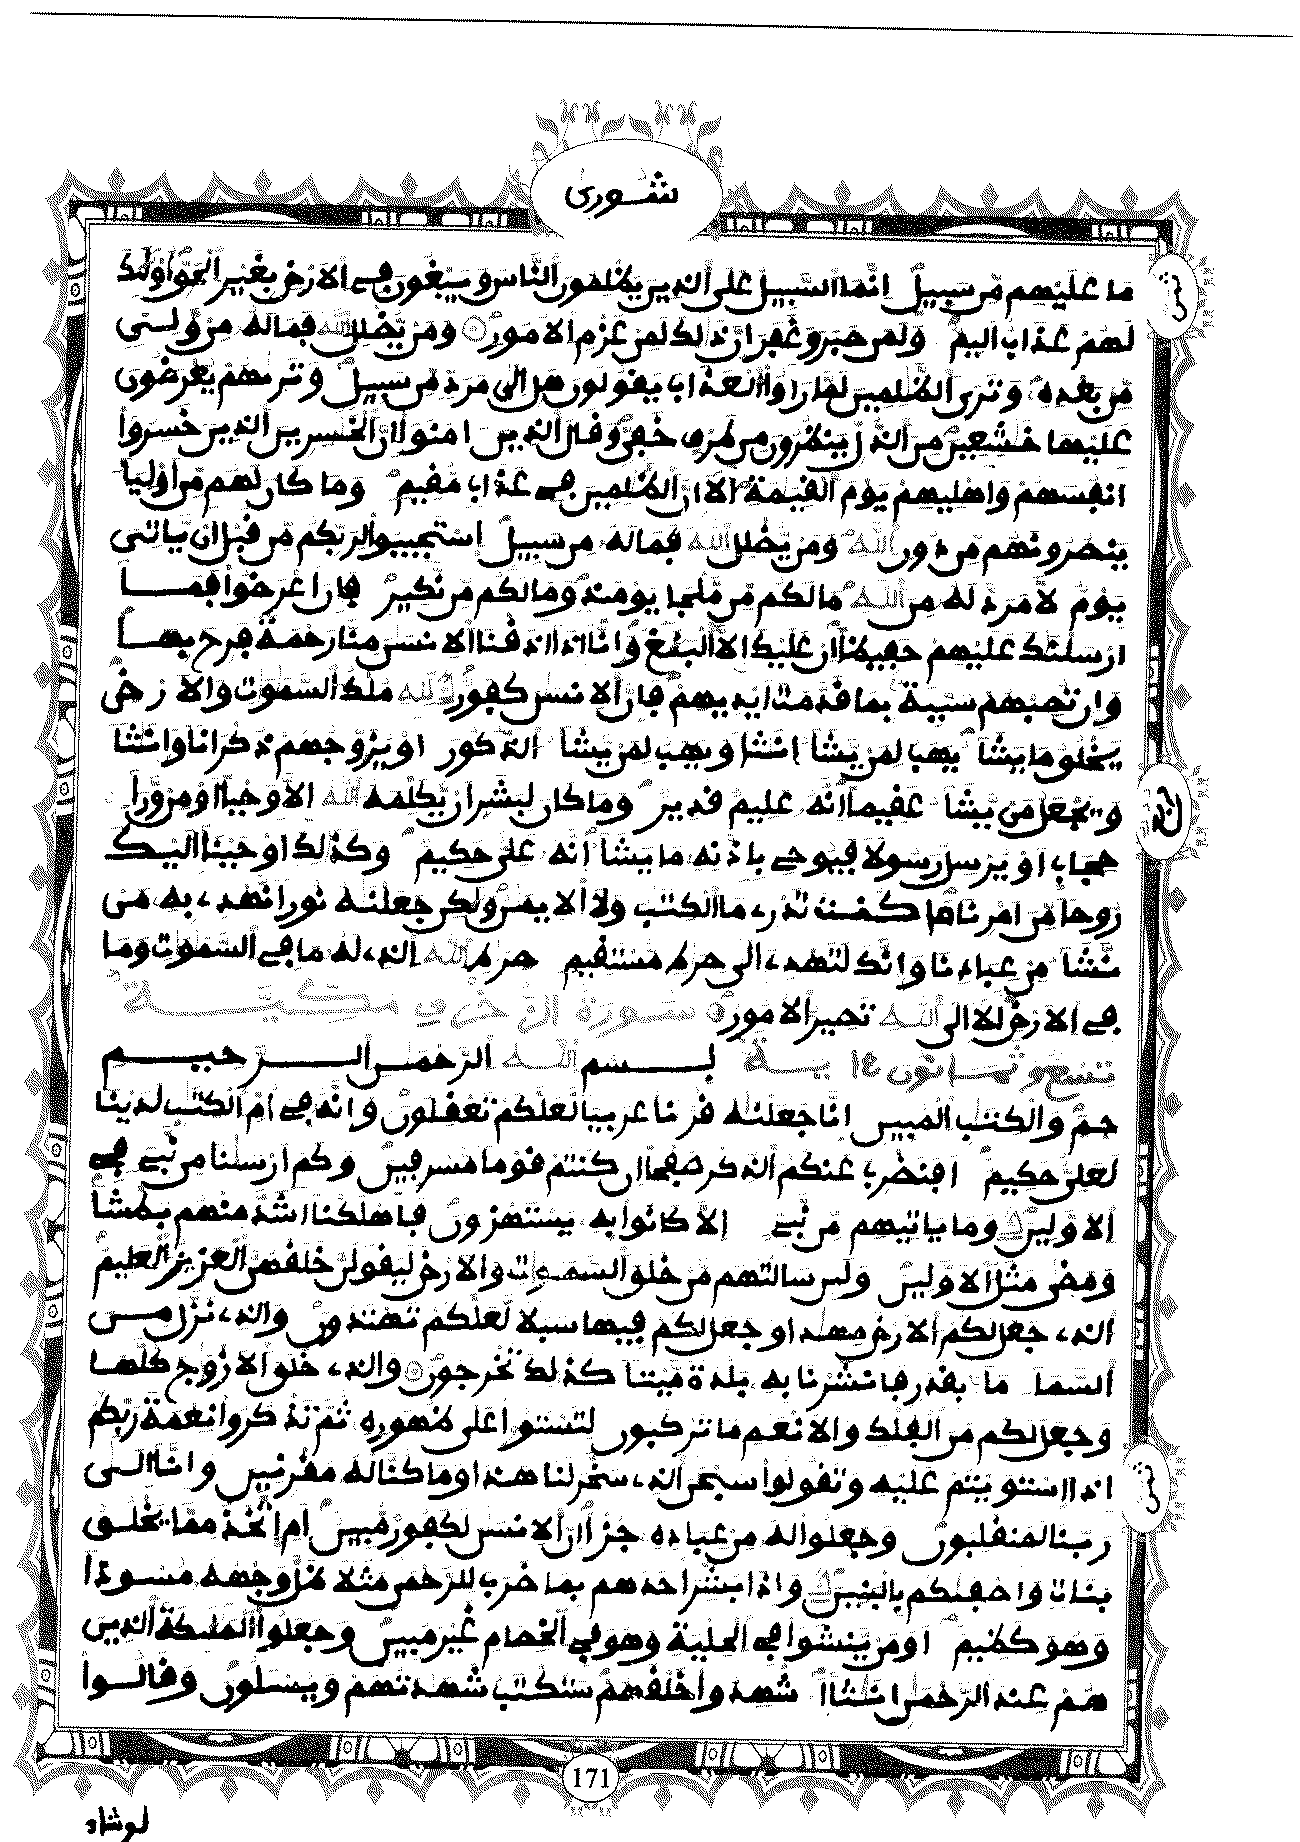 شورى
ما عليهم من سبيل انما السبيل على الذين يظلمون الناس ويبغون في الارض بغير الحق اولئك
لهم عذاب اليم ولمن صبر وغفر ان ذلك لمن عزم الامور ومن يضلل الله فماله من ولى
من بعده وترى الظلمين لما راوا العذاب يقولون هل الى مرد من سبيل وتريهم يعرضون
عليها خشعين من الذل ينظرون من طرف خفي وقال الذين امنوا ان الخسرين الذين خسروا
انفسهم واهليهم يوم القيمة الا ان الظلمين في عذاب مقيم وما كان لهم من اوليا
ينصرونهم من دون الله ومن يضلل الله فماله من سبيل استجيبوا لربكم من قبل ان ياتى
يوم لا مرد له من الله مالكم من ملجا يومئذ ومالكم من نكير فان اعرضوا فمــا
ارسلنك عليهم حفيظا ان عليك الا البلغ وانا اذا اذقنا الانسن منا رحمة فرح بهــا
وان تصبهم سيية بما قدمت ايديهم فان الانسن كفور لله ملك السموت والارض
يخلق ما يشا يهب لمن يشا انثا ويهب لمن يشا الذكور او يزوجهم ذكرانا وانثا
ويجعل من يشا عقيما انه عليم قدير وما كان لبشر ان يكلمه الله الا وحيا او من ورا
حجاب او يرسل رسولا فيوحي باذنه ما يشا انه على حكيم وكذلك اوحينا اليـك
روحا من امرنا ما كـنت تدرے ما الكتب ولا الايمن ولكن جعلنه نورا نهدے به من
نشا من عبادنا وانك لتهدے الى صرط مستقيم صرط الله الذے له ما في السموت وما
في الارض الا الى الله تصير الامور سـورة الزخرف مكيــة
تسع وثمـانون ايـة بــسم الله الرحمن الــرحيــم
حم والكتب المبين انا جعلنه قرنا عربيا لعلكم تعقلون وانه في ام الكتب لدينا
لعلى حكيم افنضرب عنكم الذكر صفحا ان كنتم قوما مسرفين وكم ارسلنا من نبي في
الاولين وما ياتيهم من نبي الا كانوا به يستهزون فاهلكنا اشد منهم بطشا
ومضى مثل الاولين ولين سالتهم من خلق السموت والارض ليقولن خلقهن العزيز العليم
الذے جعل لكم الارض مهدا وجعل لكم فيها سبلا لعلكم تهتدون والذے نزل مــن
السما ما بقدر فانشرنا به بلدة ميتا كذلك تخرجون والذے خلق الازوج كلهـا
وجعل لكم من الفلك والانعم ما تركبون لتستوا على ظهوره ثم تذكروا نعمة ربكم
اذا استويتم عليه وتقولوا سبحن الذے سخر لنا هذا وما كنا له مقرنين وانا الــى
ربنا لمنقلبون وجعلوا له من عباده جزا ان الانسن لكفور مبين ام اتخذ مما يخلـق
بنات واصفيكم بالبنين واذا بشر احدهم بما ضرب للرحمن مثلا ظل وجهه مسودا
وهو كظيم اومن ينشوا في الحلية وهو في الخصام غير مبين وجعلوا الملئكة الذين
هم عند الرحمن انثا اشهدوا خلقهم ستكتب شهدتهم ويسلون وقالـوا
171